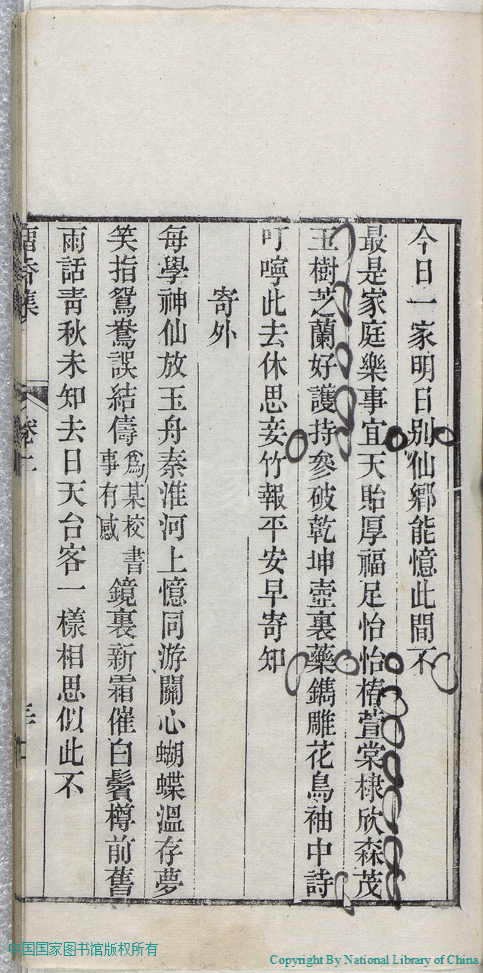 今日一家明日别仙鄉能憶此間不
最是家庭樂事宜天貽厚福足怡怡椿萱棠棣欣森茂
玉樹芝蘭好護持參破乾坤壺裏藥鐫雕花鳥袖中詩
叮嚀此去休思妾竹報平安早寄知
寄外
每學神仙放玉舟秦淮河上憶同游關心蝴蝶溫存夢
笑指鴛鴦誤結儔爲某校書事有感鏡裏新霜催白鬢樽前舊
雨話青秋未知去日天台客一樣相思似此不
集
卷二
中国国家图书馆版权所有
Copyright By National Library of China